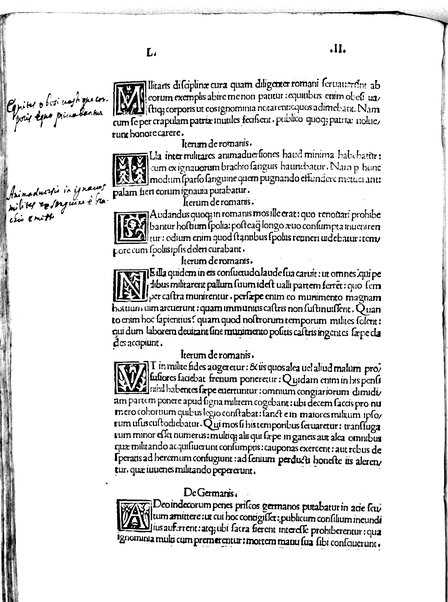 L. .II.
Ilitaris disciplinæ cura quam diligenter romani seruauerint ab
eorum exemplis abire me non patitur: equitibus enim obesi ua
stiq; corporis ut cos ignominia notarent: equos adimebant. Nam
cum se per crapulam patriæ inutiles fecissent, publico quoq; patriæ uolue,
runt honore carere.
Iterum de romanis.
Lla inter militares animaduersiones haud minima habebatur:
cum ex ignauorum brachio sanguis hauriebatur. Nam p hunc
modum sparso sanguine quem pugnando effundere
palam fieri eorum ignauia putabatur.
Iterum de romanis.
Audandus quoq; in romanis mos ille erat: quo renouari prohibe
bantur hostium spolia: posteaq; longo æuo consumpta
tur: odium enim quod stantibus spoliis retineri uidebatur: tem,
pore cum spoliis ipsis deleri curabant.
Iterum de romanis.
Eilla quidem in eis consuetudo laude sua caruit: ut omnes qui pe
dibus militarent pallum suum idest uallum partem ferret: quo sem
per castra munirentur. persæpe enim eo munimento magnam
hostium uim arcuerunt: quam immunitis castris non sustinuissent. Quan
to enim hoc sapientius? quam quod nostrorum temporum milites solent:
qui dum laborem deuitant sine munimento positis castris ingentes sæpe cla
des accipiunt.
Iterum de romanis.
VT in milite fides augeretur: & iis quos alea uel aliud malum pro/
fusiores faciebat frenum poneretur: Quidam enim in his pensi
nihil habentes sæpe euertuntur: omnium congiariorum dimidi/
am partem ponere apud signa militem cogebant: ubi decem saccis pro nu
mero cohortium quibus legio constabat: sancte in maiores militum ipso/
rum usus custodiebatur. Qui mos si his temporibus seruaretur: transfuga
rum minor esset numerus: multiq; alii qui sæpe in ganeis aut alea omnibus
quæ militando acquisuerunt consumptis: caupones exercent: aut rebus de
speratis ad heremum confugiunt: ad senium perducti honeste iis alerent
tur, quæ iuuenes militando pepererunt.
De Germanis.
Adeo indecorum penes priscos germanos putabatur in acie scu/
tum amittere: ut cui hoc contigisset: publicum consilium ineundi
ius auferrent: atq; ubi sacra fierent interesse prohiberentur: qua
ignominia multi cum premerentur: mortem manu sua sibi consciuerunt.